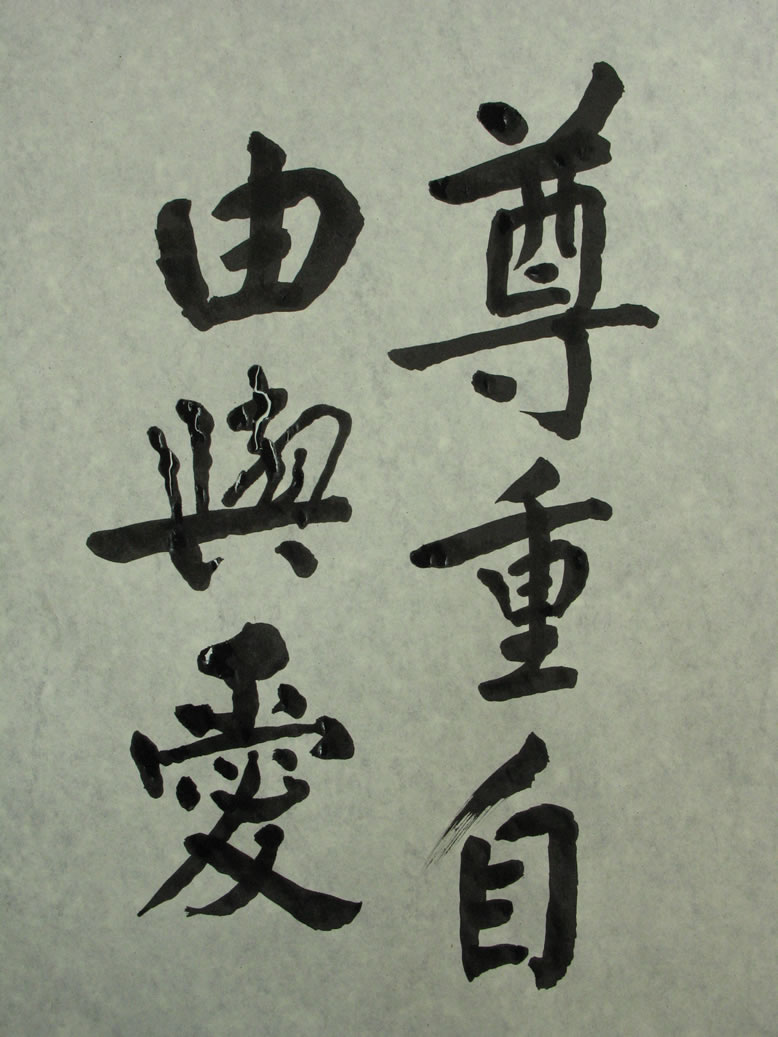 尊重自
由與愛